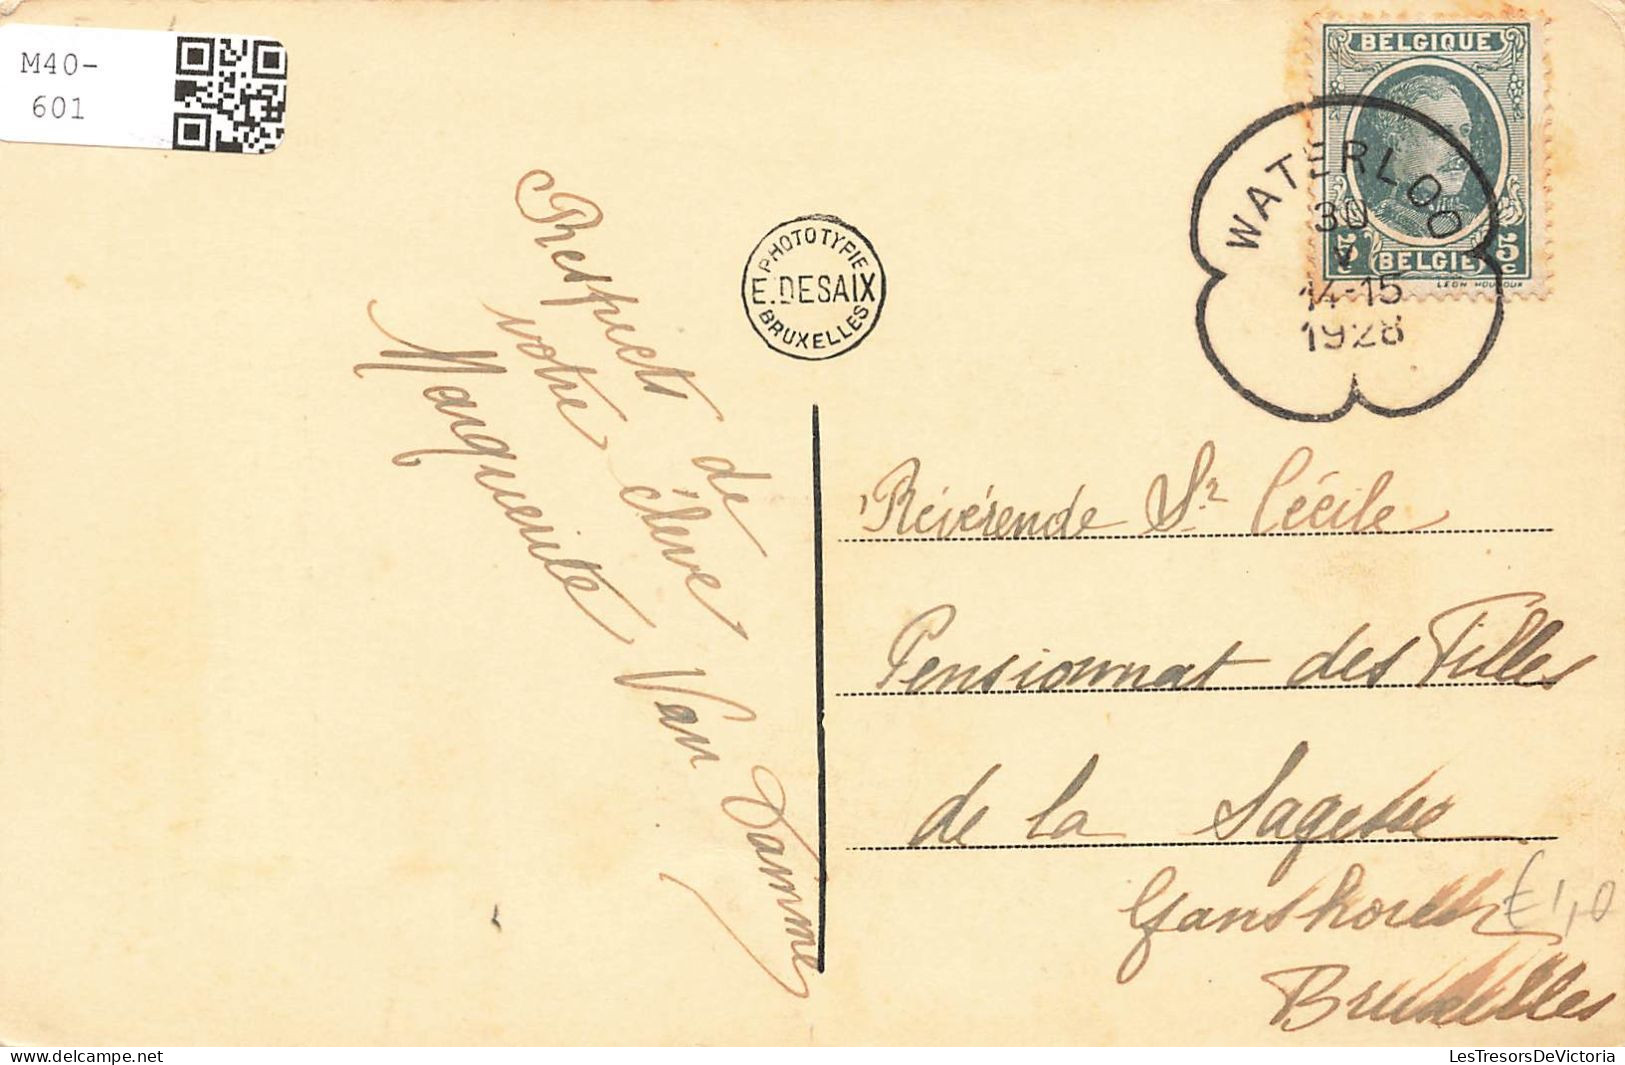 M40-
601
BELGIQUE
5c 5c
BELGIË
LEON HOUYOUX
WATERLOO
30
V
14-15
1928
PHOTOTYPIE
E.DESAIX
BRUXELLES
Respects de
votre élève
Marguerite Van Damme
Révérende Sr Cécile
Pensionnat des Filles
de la Sagesse
Ganshoren
Bruxelles
€1,0
delcampe.net
LesTresorsDeVictoria